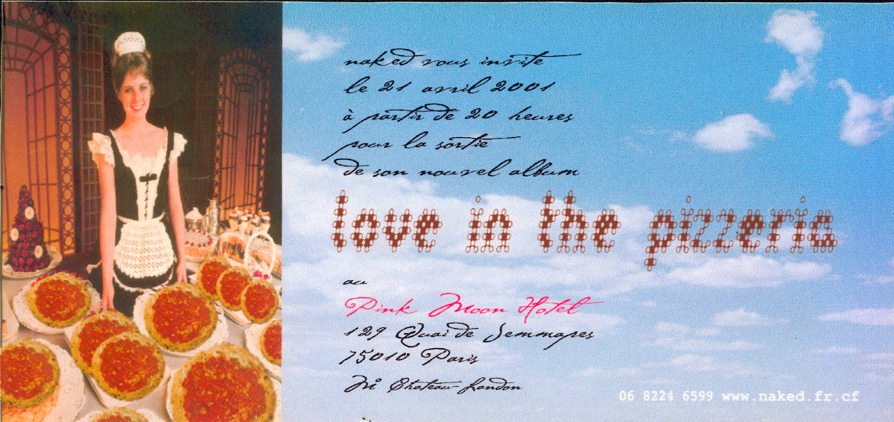 naked vous invite
le 21 avril 2001
à partir de 20 heures
pour la sortie
de son nouvel album
love in the pizzeria
au
Pink Moon Hotel
129 Quai de Jemmapes
75010 Paris
M° Chateau-Landon
06 8224 6599 www.naked.fr.cf